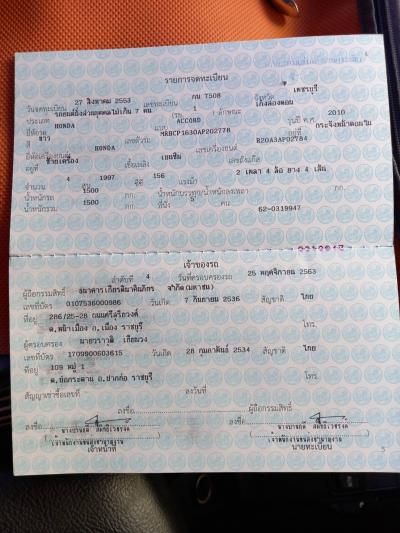 รายการจดทะเบียน
วันจดทะเบียน 27 สิงหาคม 2553 เลขทะเบียน กน 7508 จังหวัด เพชรบุรี
ประเภท รถยนต์นั่งส่วนบุคคลไม่เกิน 7 คน (รย. 1 ) ลักษณะ เก๋งสองตอน
ยี่ห้อรถ HONDA แบบ ACCORD รุ่นปี ค.ศ. 2010
สี ขาว เลขตัวรถ MRHCP1630AP202778 อยู่ที่ กระจังหน้าตอนใน
ยี่ห้อเครื่องยนต์ HONDA เลขเครื่องยนต์ R20A3AP02784
อยู่ที่ ข้างเครื่อง เชื้อเพลิง เบนซิน เลขถังแก๊ส
จำนวน 4 สูบ 1997 ซีซี 156 แรงม้า 2 เพลา 4 ล้อ ยาง 4 เส้น
น้ำหนักรถ 1500 กก. น้ำหนักบรรทุก/น้ำหนักลงเพลา กก.
น้ำหนักรวม 1500 กก. ที่นั่ง 5 คน 62-0319947
เจ้าของรถ
ลำดับที่ 4 วันที่ครอบครองรถ 25 พฤศจิกายน 2563
ผู้ถือกรรมสิทธิ์ ธนาคารเกียรตินาคินภัทร จำกัด (มหาชน)
เลขที่บัตร 0107536000986 วันเกิด 7 กันยายน 2536 สัญชาติ ไทย
ที่อยู่ 286/25-28 ถนนศรีสุริยวงศ์
ต.หน้าเมือง อ.เมือง ราชบุรี โทร.
ผู้ครอบครอง นายวราวุฒิ เถื่อนวง
เลขที่บัตร 1709900603615 วันเกิด 28 กุมภาพันธ์ 2534 สัญชาติ ไทย
ที่อยู่ 109 หมู่ 1
ต.บ่อกระดาน อ.ปากท่อ ราชบุรี โทร.
สัญญาเช่าซื้อเลขที่ ลงวันที่
ลงชื่อ ผู้ถือกรรมสิทธิ์
ลงชื่อ ลงชื่อ
เจ้าหน้าที่ นายทะเบียน
5